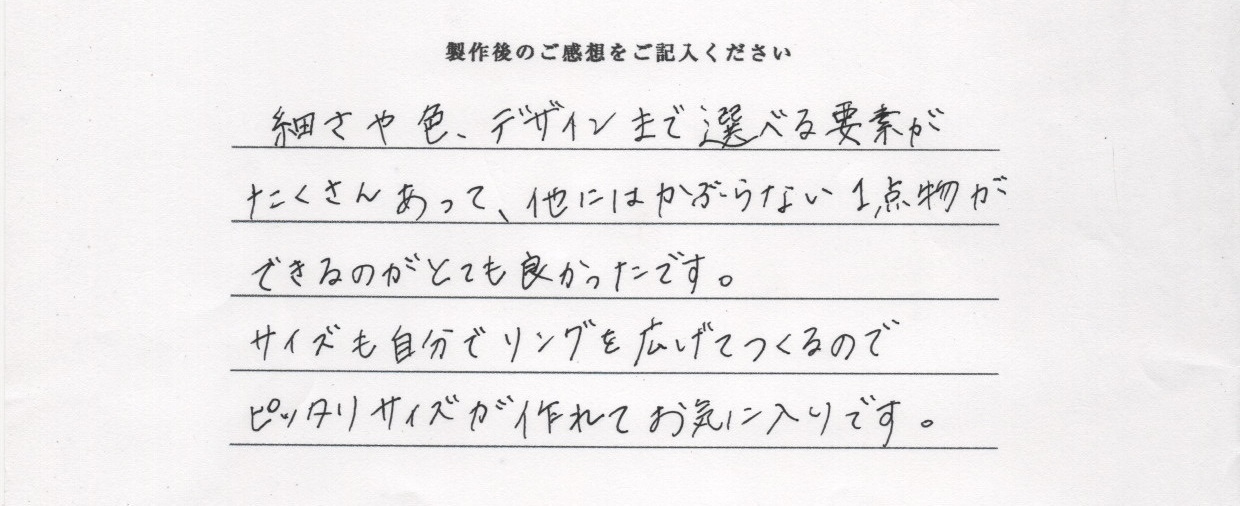 製作後のご感想をご記入ください
細さや色、デザインまで選べる要素が
たくさんあって、他にはかぶらない1点物が
できるのがとても良かったです。
サイズも自分でリングを広げてつくるので
ピッタリサイズが作れてお気に入りです。